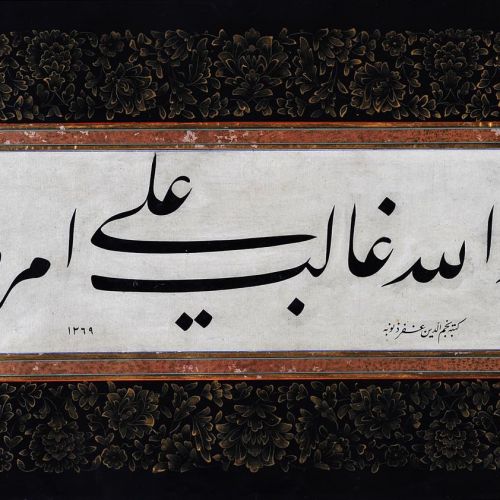 الله غالب علی امر
کتبه نجم الدین غفر ذنوبه
١٣٦٩